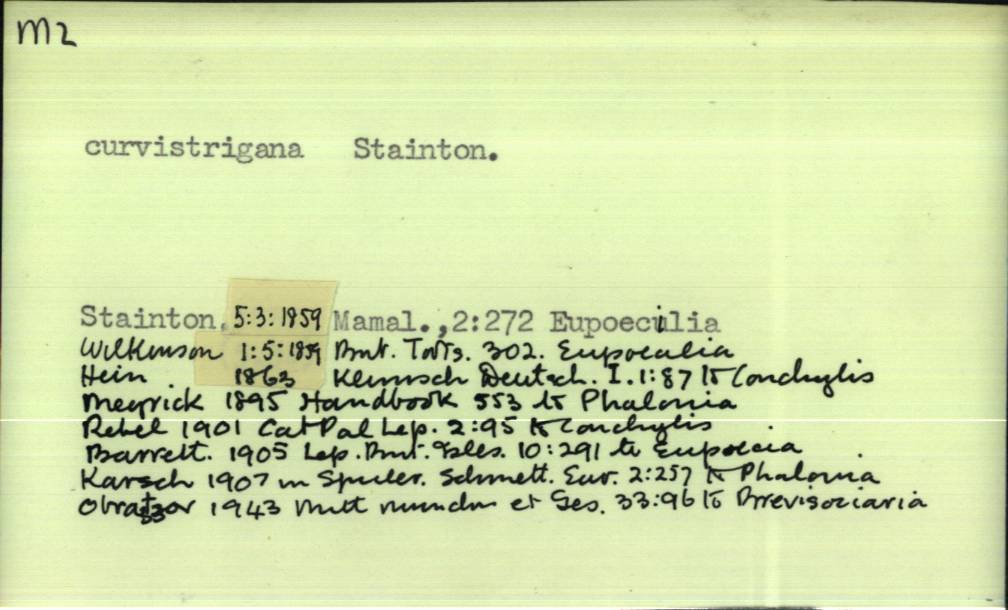 M2
curvistrigana Stainton.
Stainton, 5:3:1859 Mamal.,2:272 Eupoecilia
Wilkinson 1:5:1859 Brit. Torts. 302. Eupoecilia
Hein. 1863 Schmett. Deutsch. I.1:87 to Conchylis
Meyrick 1895 Handbook 553 to Phalonia
Rebel 1901 Cat Pal Lep. 2:95 to Conchylis
Barrett. 1905 Lep. Brit. Isles. 10:291 to Eupoecia
Karsch 1907 in Spuler. Schmett. Eur. 2:257 to Phalonia
Obraztsov 1943 Mitt munchn et Ges. 33:96 to Brevisociaria